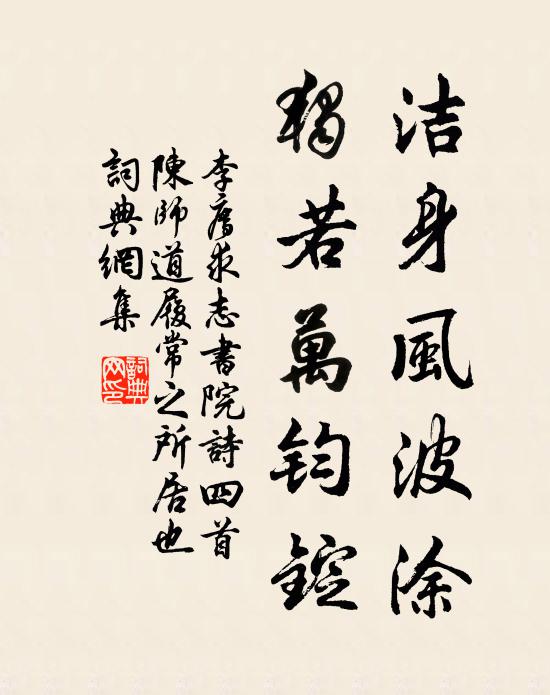 洁身風波涂
獨若萬鈞錠
李廌求志書院詩四首
陳師道履常之所居也
詞典網集
詞典
网印